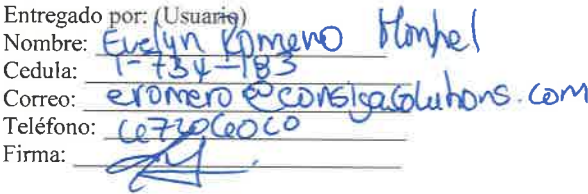 Entregado por: (Usuario)
Nombre: Evelyn Romero
Cedula: 1-734-183
Correo: eromero@consigasolutions.com
Teléfono:
Firma: